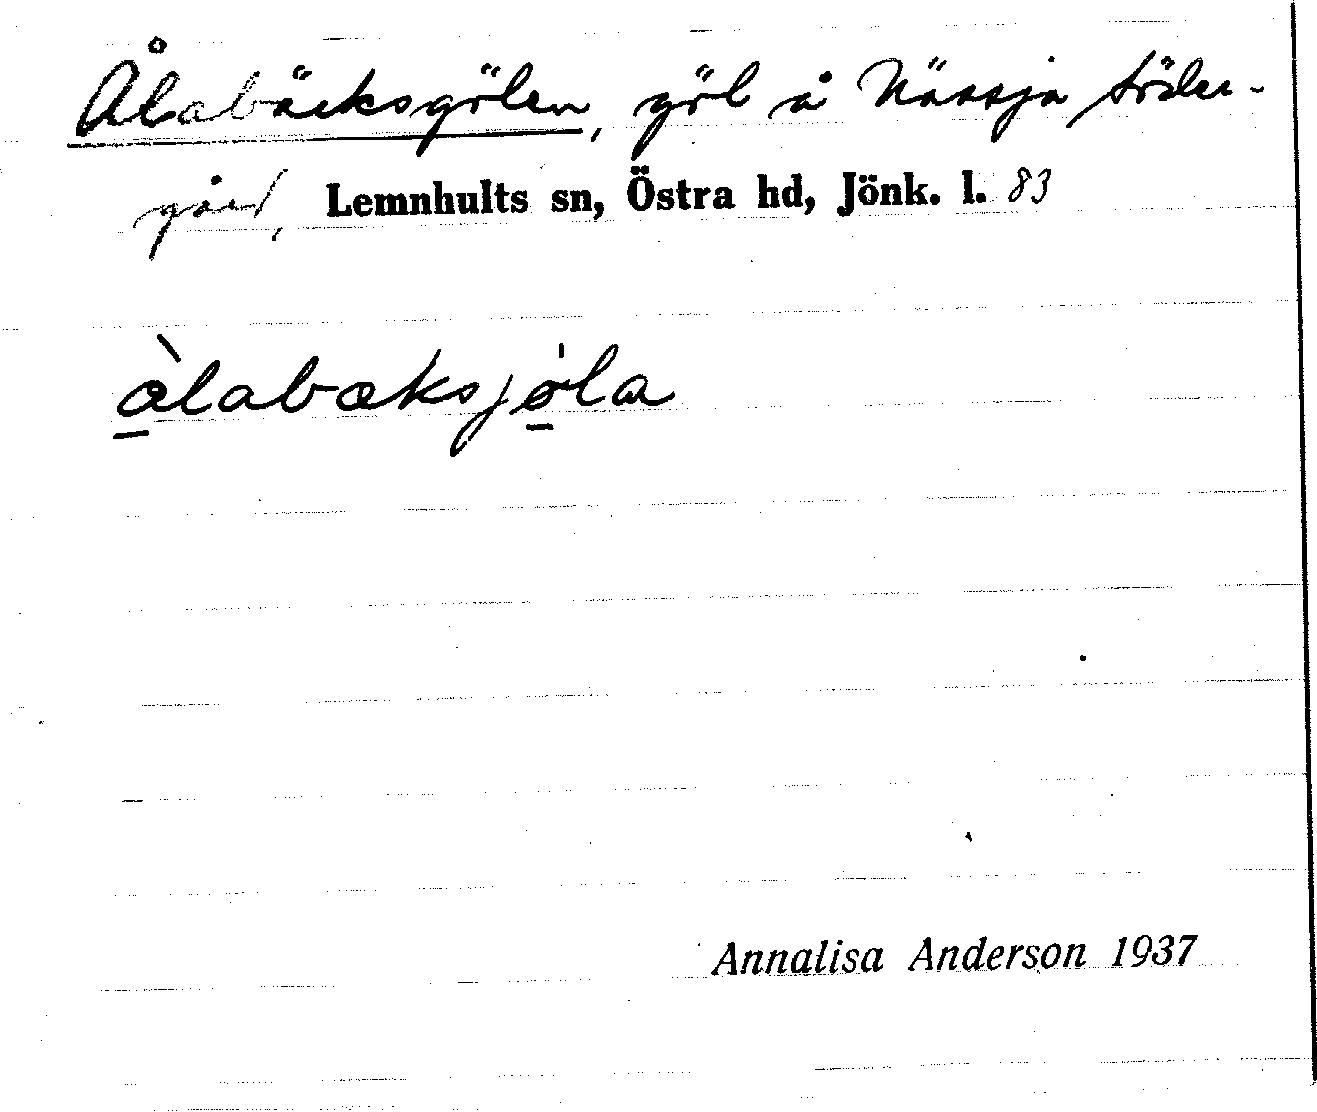 Ålabäcksgölen, göl å Nässja Söder-
gård, Lemnhults sn, Östra hd, Jönk. l. 83
àlabæksjøla
Annalisa Anderson 1937